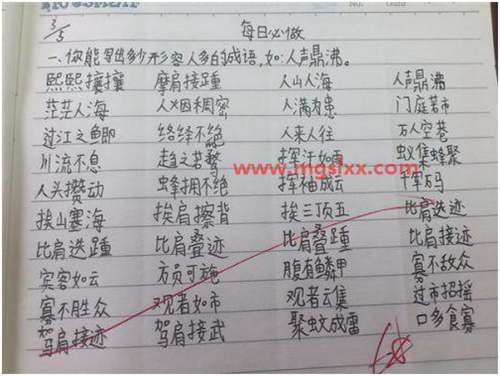 3/5 每日必做
一、你能写出多少形容人多的成语,如:人声鼎沸。
熙熙攘攘 摩肩接踵 人山人海 人声鼎沸
茫茫人海 人烟稠密 人满为患 门庭若市
过江之鲫 络绎不绝 人来人往 万人空巷
川流不息 趋之若鹜 挥汗如雨 蚁集蜂聚
www.mgslxx.com
人头攒动 蜂拥不绝 挥袖成云 千军万马
挨山塞海 挨肩擦背 挨三顶五 比肩迭迹
比肩迭踵 比肩叠迹 比肩叠踵 比肩接迹
宾客如云 方员可施 腹有鳞甲 寡不敌众
寡不胜众 观者如市 观者云集 过市招摇
驾肩接迹 驾肩接武 聚蚊成雷 口多食寡